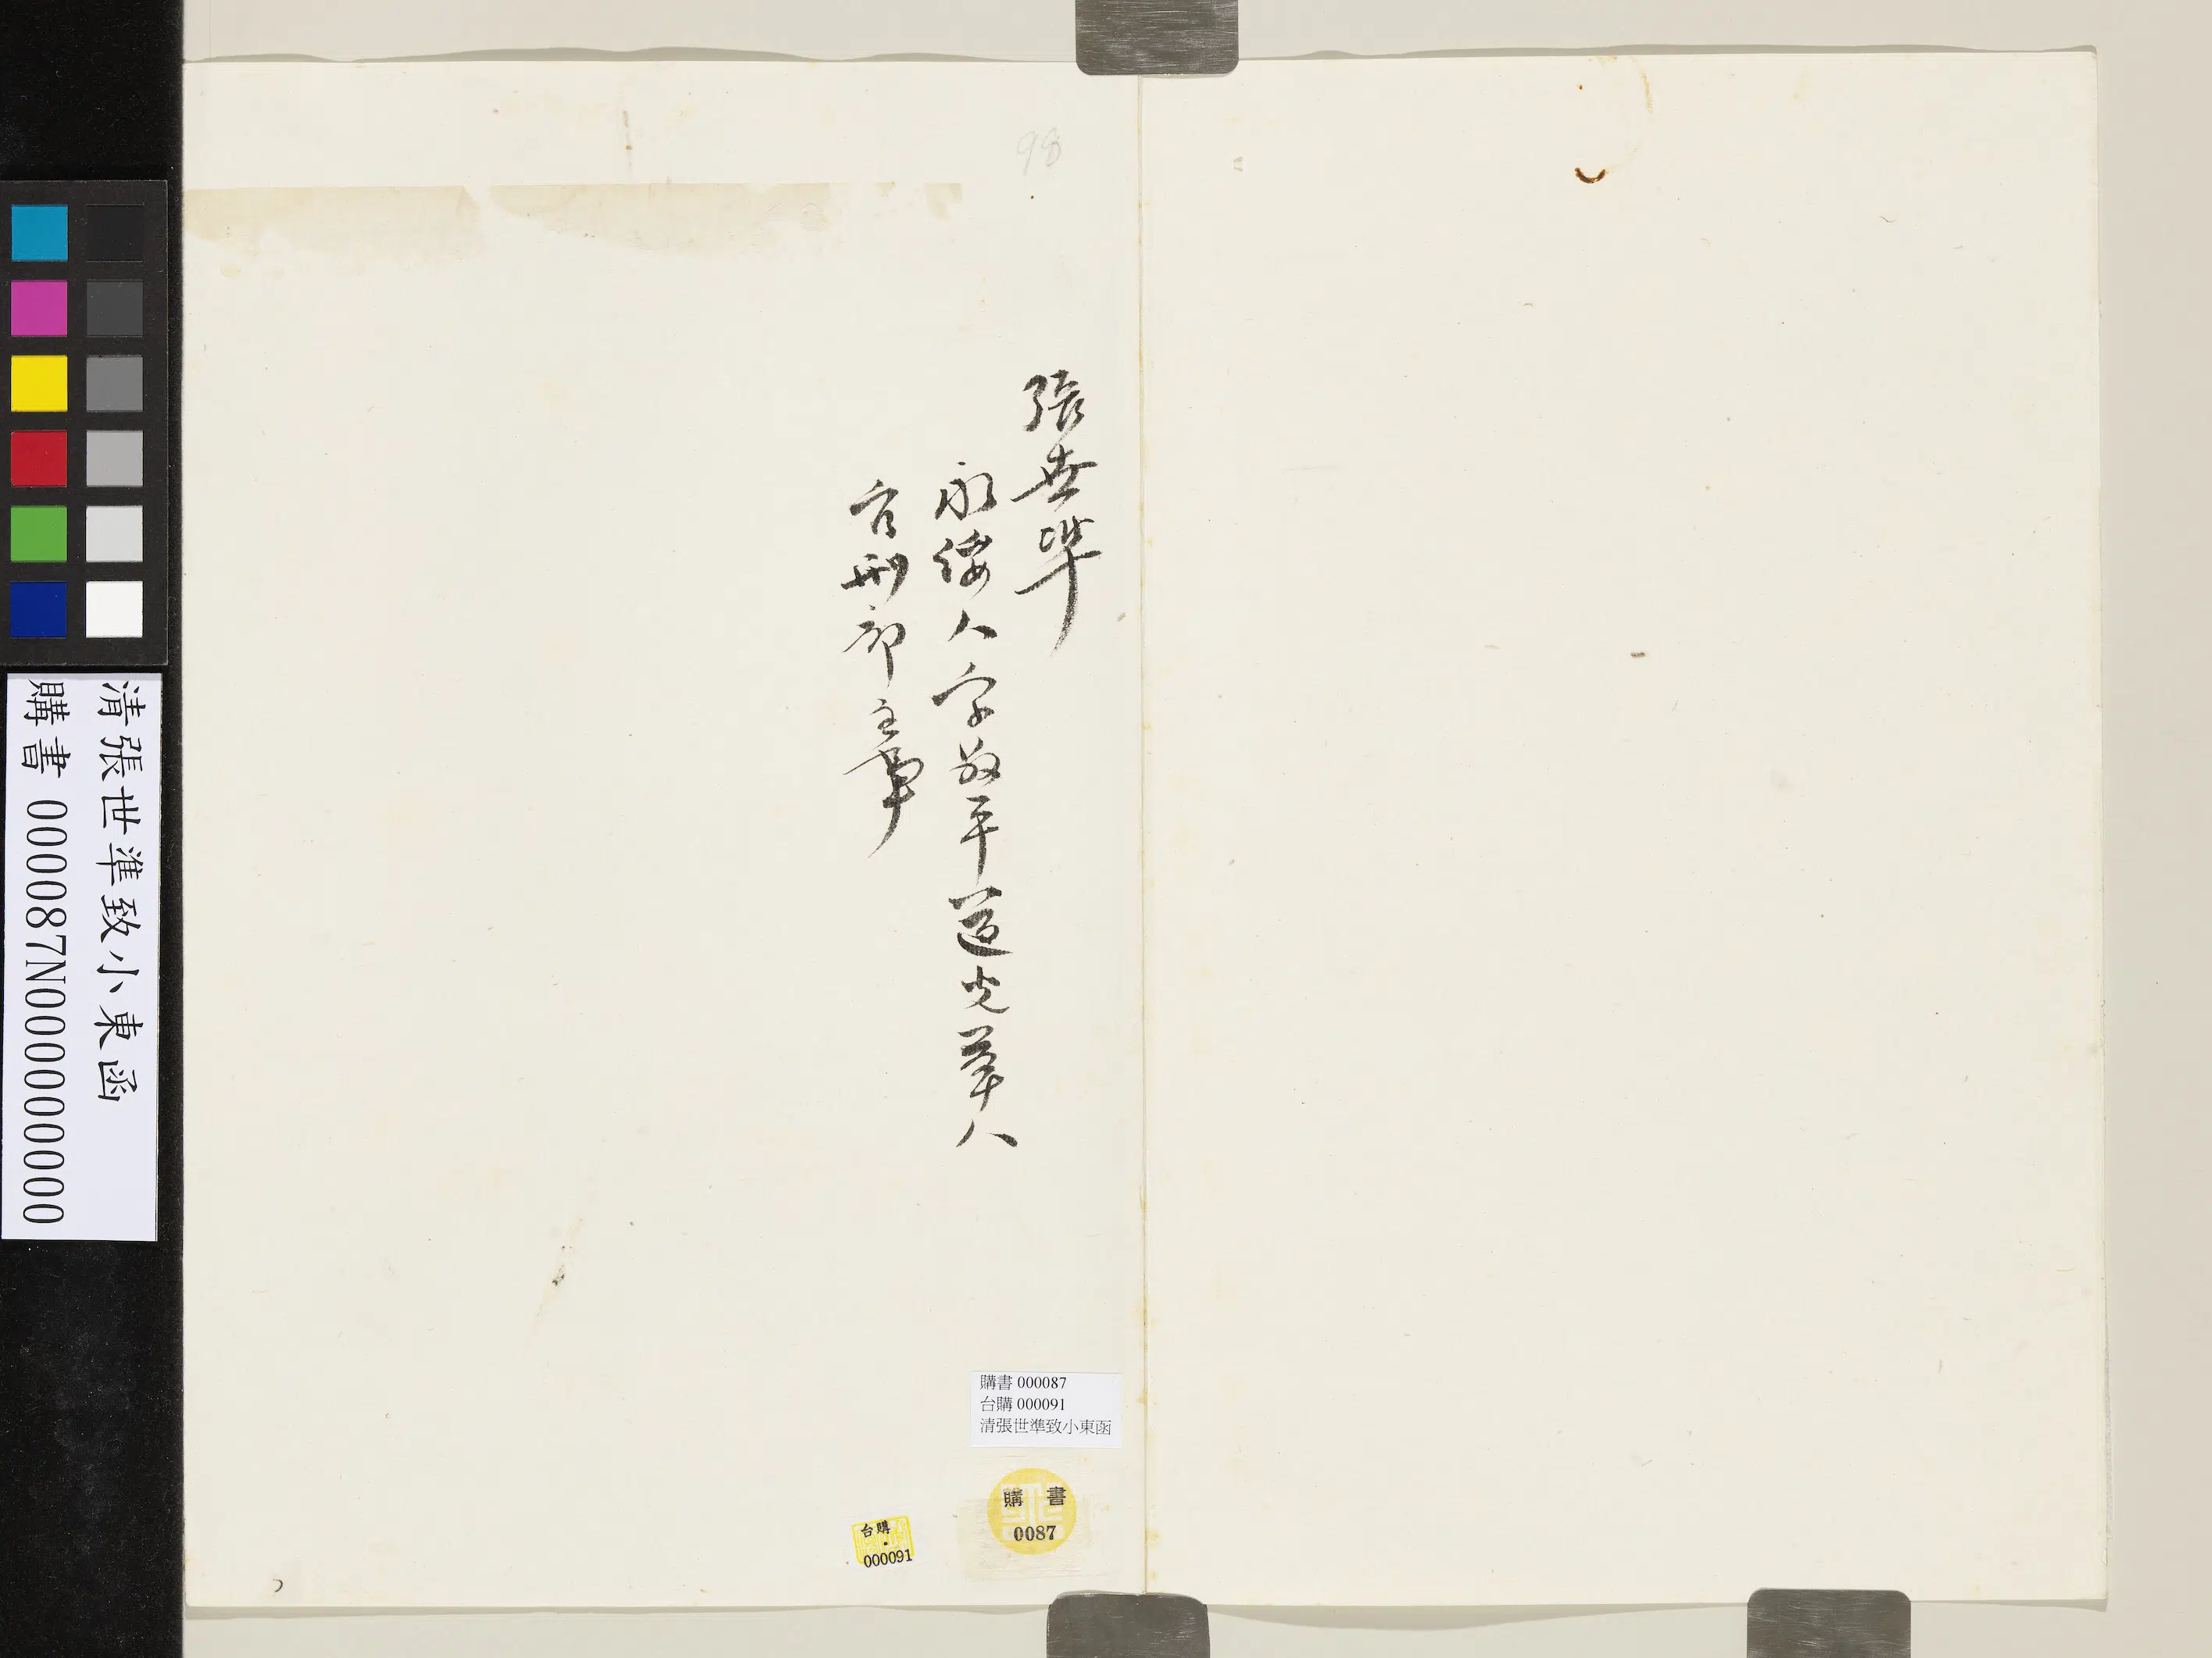 張世準
永綏人字叔平道光舉人
官刑部主事
98
購書 000087
台購 000091
清張世準致小東函
購書
0087
台購
000091
清張世準致小東函
購書 000087N000000000